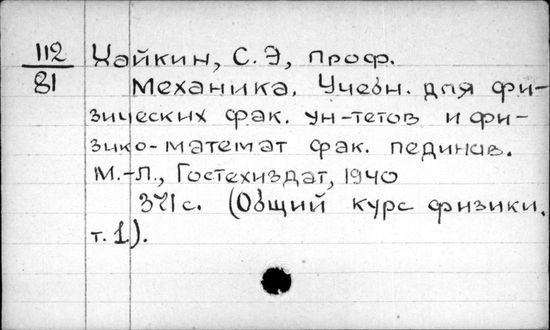 112
81
Хайкин, С. Э, проф.
Механика. Учебн. для фи-
зических фак. ун-тетов и фи-
зико-математ фак. пединов.
М.-Л., Гостехиздат, 1940
371с. (Общий курс физики.
т. 1).